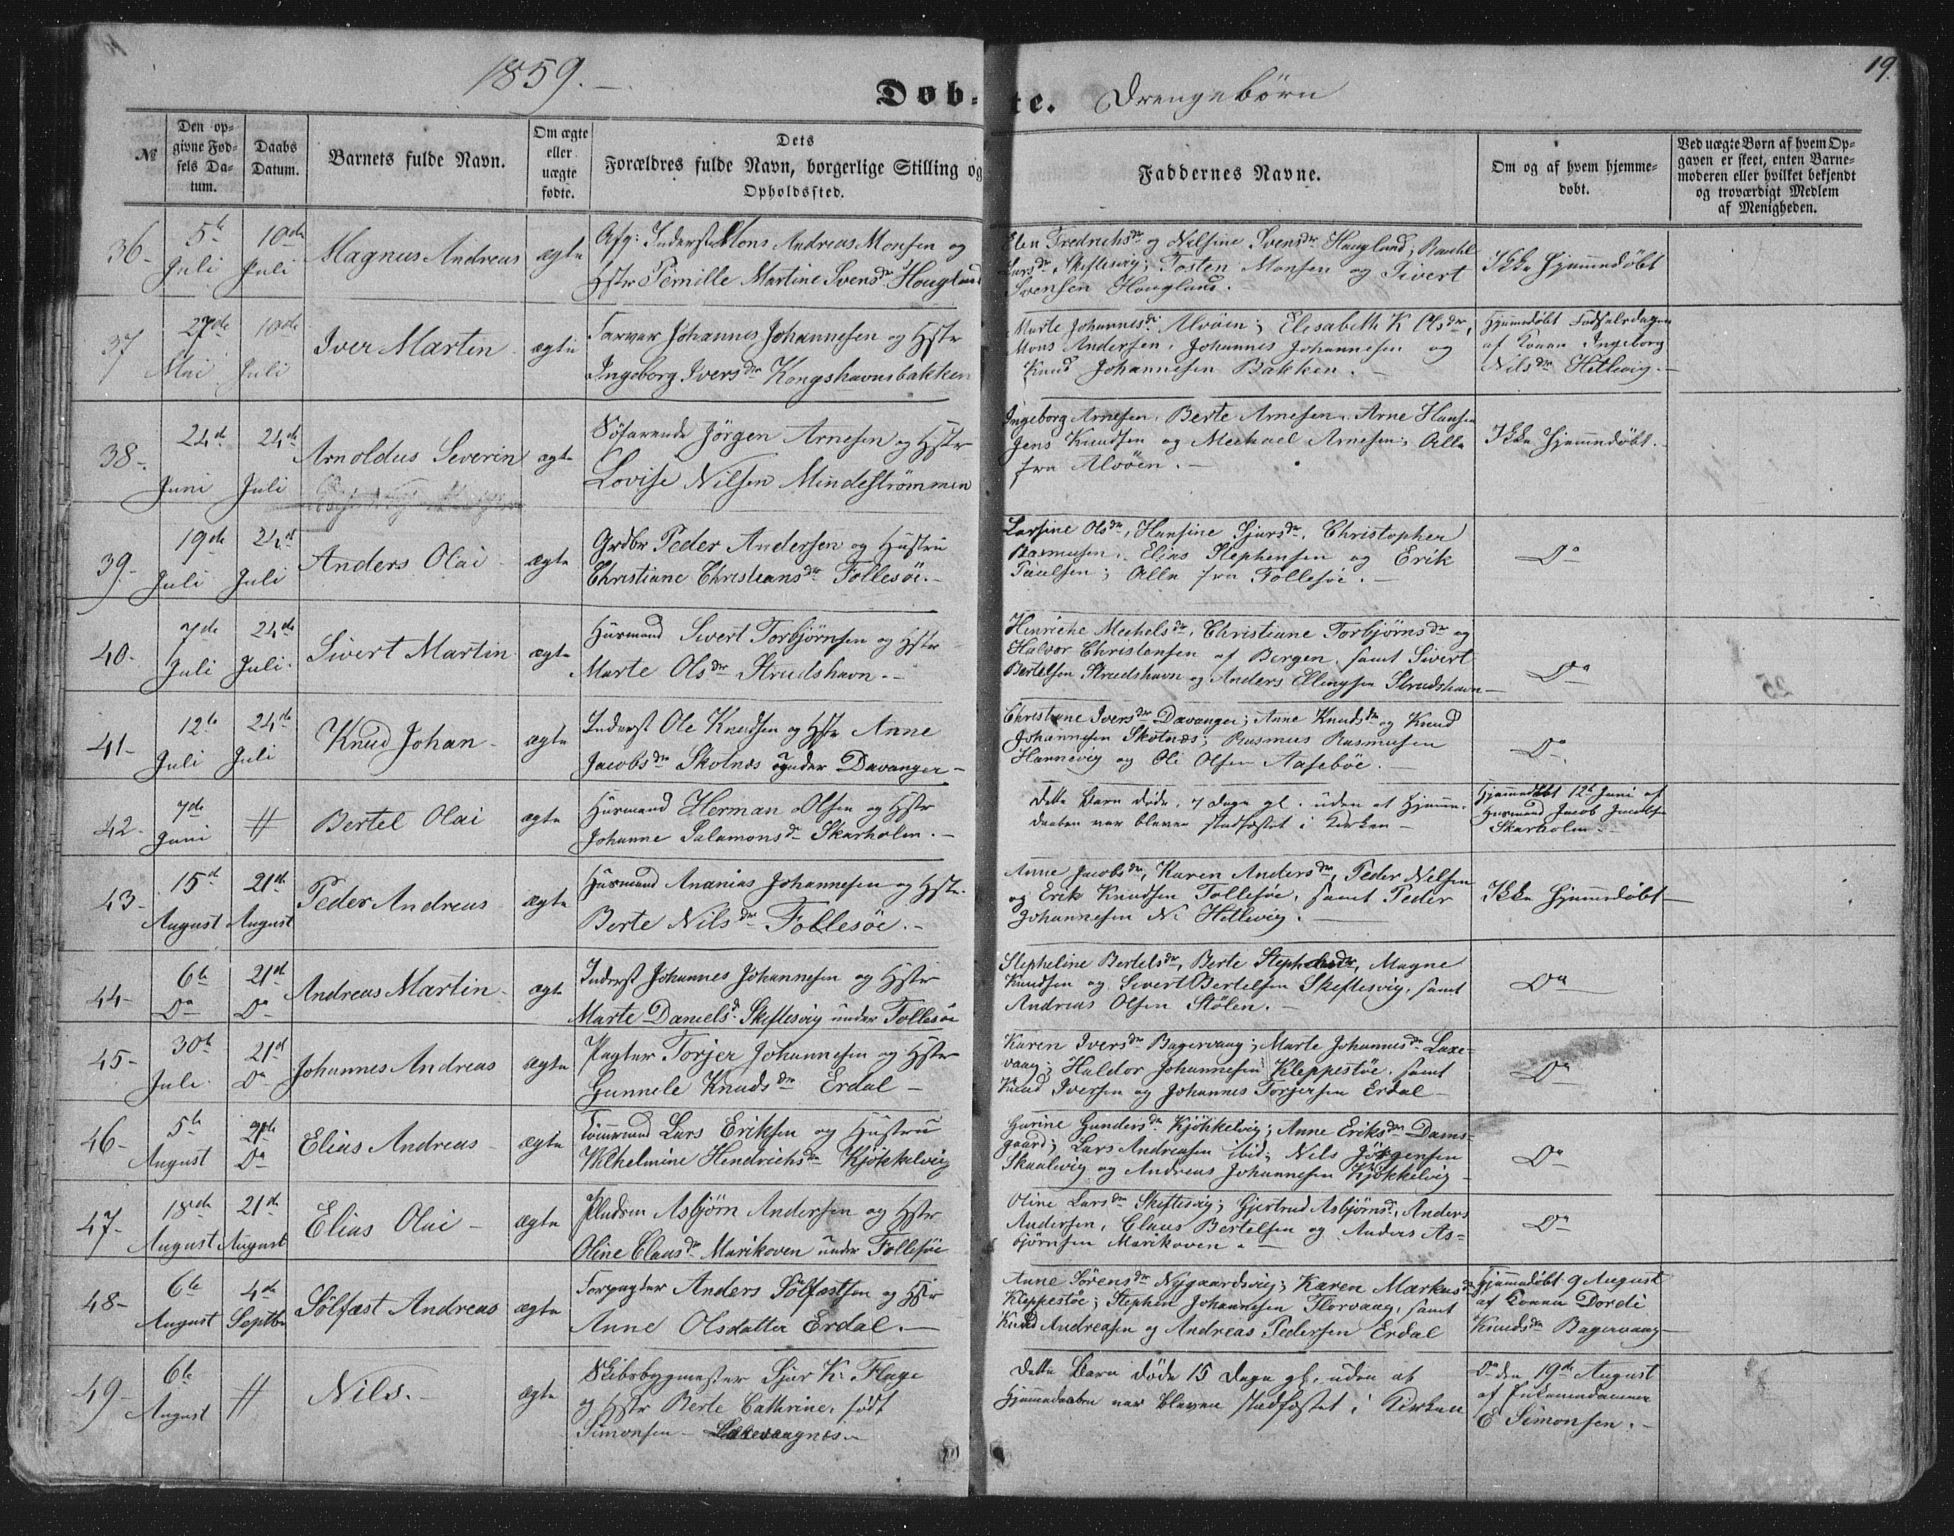 1859. —
19.
Døb-te. Drengebørn
№
Den op-
givne Fød-
sels Da-
tum.
Daabs
Datum.
Barnets fulde Navn.
Om ægte
eller
uægte
fødte.
Dets
Forældres fulde Navn, borgerlige Stilling og
Opholdssted.
Faddernes Navne.
Om og af hvem hjemme-
døbt.
Ved uægte Børn af hvem Op-
gaven er skeet, enten Barne-
moderen eller hvilket bekjendt
og troværdigt Medlem
af Menigheden.
36- 5te Juli 10de Juli Magnus Andreas ægte
Afg: Inderst Mons Andreas Monsen og
Hstr Pernille Martine Svensdr Hougland
Elen Fredrichsdr og Nilsine Svensdr Hougland, Rachel
Larsdr Skiftesvig; Tosten Monsen og Sivert
Svensen Hougland.
Ikke Hjemmedøbt
37 27de Mai 10de Juli Iver Martin ægte
Farver Johannes Johannesen og Hstr
Ingeborg Iversdr Kongshavnsbakken
Marte Johannesdr Alvøen; Elisabeth K Olsdr,
Mons Andersen, Johannes Johannesen og
Knud Johannesen Bakken. —
Hjemmedøbt Fødselsdagen
af Konen Ingeborg
Nilsdr Hetlevig. —
38-. 24de Juni 24de Juli Arnoldus Severin ægte
Søfarende Jørgen Arnesen og Hstr
Lovise Nilsen Mindeströmmen
Ingeborg Arnesen, Berte Arnesen, Arne Hansen
Jens Knudsen og Mechael Arnesen; Alle
fra Alvøen. —
Ikke Hjemmedøbt.
39- 19de Juli 24de Juli Anders Olai - ægte
Grdbr Peder Andersen og Hustru
Christiane Christiansdr Follesöe. —
Larsine Olsdr, Hansine Sjursdr, Christopher
Rasmusen, Elias Stephensen og Erik
Paulsen; Alle fra Follesöe. —
Do
40- 7de Juli 24de Juli. Sivert Martin ægte
Husmand Sivert Torbjørnsen og Hstr
Marte Olsdr Strudshavn. —
Hinriche Mechelsdr, Christiane Torbjørnsdr og
Halvor Christensen af Bergen, samt Sivert
Bertelsen Strudshavn og Anders Ellingsen Strudshavn —
Do
41- 12te Juli 24de Juli Knud Johan - ægte
Inderst Ole Knudsen og Hstr Anne
Jacobsdr Skotnæs under Davanger —
Christiane Iversdr Davanger; Anne Knudsdr og Knud
Johannesen Skotnæs; Rasmus Rasmusen
Hannevig og Ole Olsen Aasebøe. —
Do
42- 7de Juni # Bertel Olai ægte
Husmand Herman Olsen og Hstr
Johanne Salamonsdr Skarholm. —
Dette Barn døde, 7 Dage gl. uden at Hjemme-
daaben var bleven stadfæstet i Kirken —
Hjemmedøbt 12te Juni af
Husmand Jacob Jacobsen
Skarholm —
43- 15de August 21de August Peder Andreas ægte
Husmand Ananias Johannesen og Hstr
Berte Nilsdr Follesöe. —
Anne Jacobsdr, Karen Andersdr, Peder Nilsen
og Erik Knudsen Follesöe, samt Peder
Johannesen N. Hetlevig. —
Ikke Hjemmedøbt —
44- 6te Do 21de Do Andreas Martin ægte
Inderst Johannes Johannesen og Hstr
Marte Danielsd. Skiftesvig under Follesöe
Stepheline Bertelsdr, Berte Stephensdr, Magne
Knudsen og Sivert Bertelsen Skiftesvig, samt
Andreas Olsen Stølen. —
Do
45- 30te Juli 21de Do Johannes Andreas ægte
Pagter Torjer Johannesen og Hstr
Gunnele Knudsdr Erdal —
Karen Iversdr Bagervaag; Marte Johannesdr Laxe-
vaag; Haldor Johannesen Kleppestöe, samt
Knud Iversen og Johannes Torjersen Erdal —
Do
46- 5te August 21de Do Elias Andreas - ægte
Tömmermd Lars Eriksen og Hustru
Vilhelmine Hendrichsdr Kjökkelvig
Gurine Gundersdr Kjökkelvig; Anne Eriksdr Dams-
gaard; Lars Andreasen ibid; Nils Jörgensen
Skaalevig og Andreas Johannesen Kjökkelvig —
Do
47- 18de August 21de August Elias Olai - ægte
Asbjørn Andersen og Hstr
Oline Clausdr Marikoven under Follesöe
Oline Larsdr Skiftesvig; Gjertrud Asbjørnsd., Anders
Andersen, Claus Bertelsen og Anders As-
bjørnsen Marikoven. —
Do
48- 6te August 4de Septbr Sölfæst Andreas ægte
Forpagter Anders Sölfæstsen og Hstr
Anne Olsdatter Erdal. —
Anne Sörensdr Nygaardsvig; Karen Markusdr
Kleppestöe; Stephen Johannesen Florvaag, samt
Knud Andreasen og Andreas Pedersen Erdal
Hjemmedøbt 9 August
af Konen Dordi
Knudsdr Bagervaag —
49- 6te August # Nils. - ægte
Skibsbygmester Sjur K. Flage
og Hstr Berte Cathrine, født
Simonsen — Laxevaagnæs —
Dette Barn døde 15 Dage gl. uden at
Hjemmedaaben var bleven stadfæstet i Kirken
Do den 19de August
af
E Simonsen. —